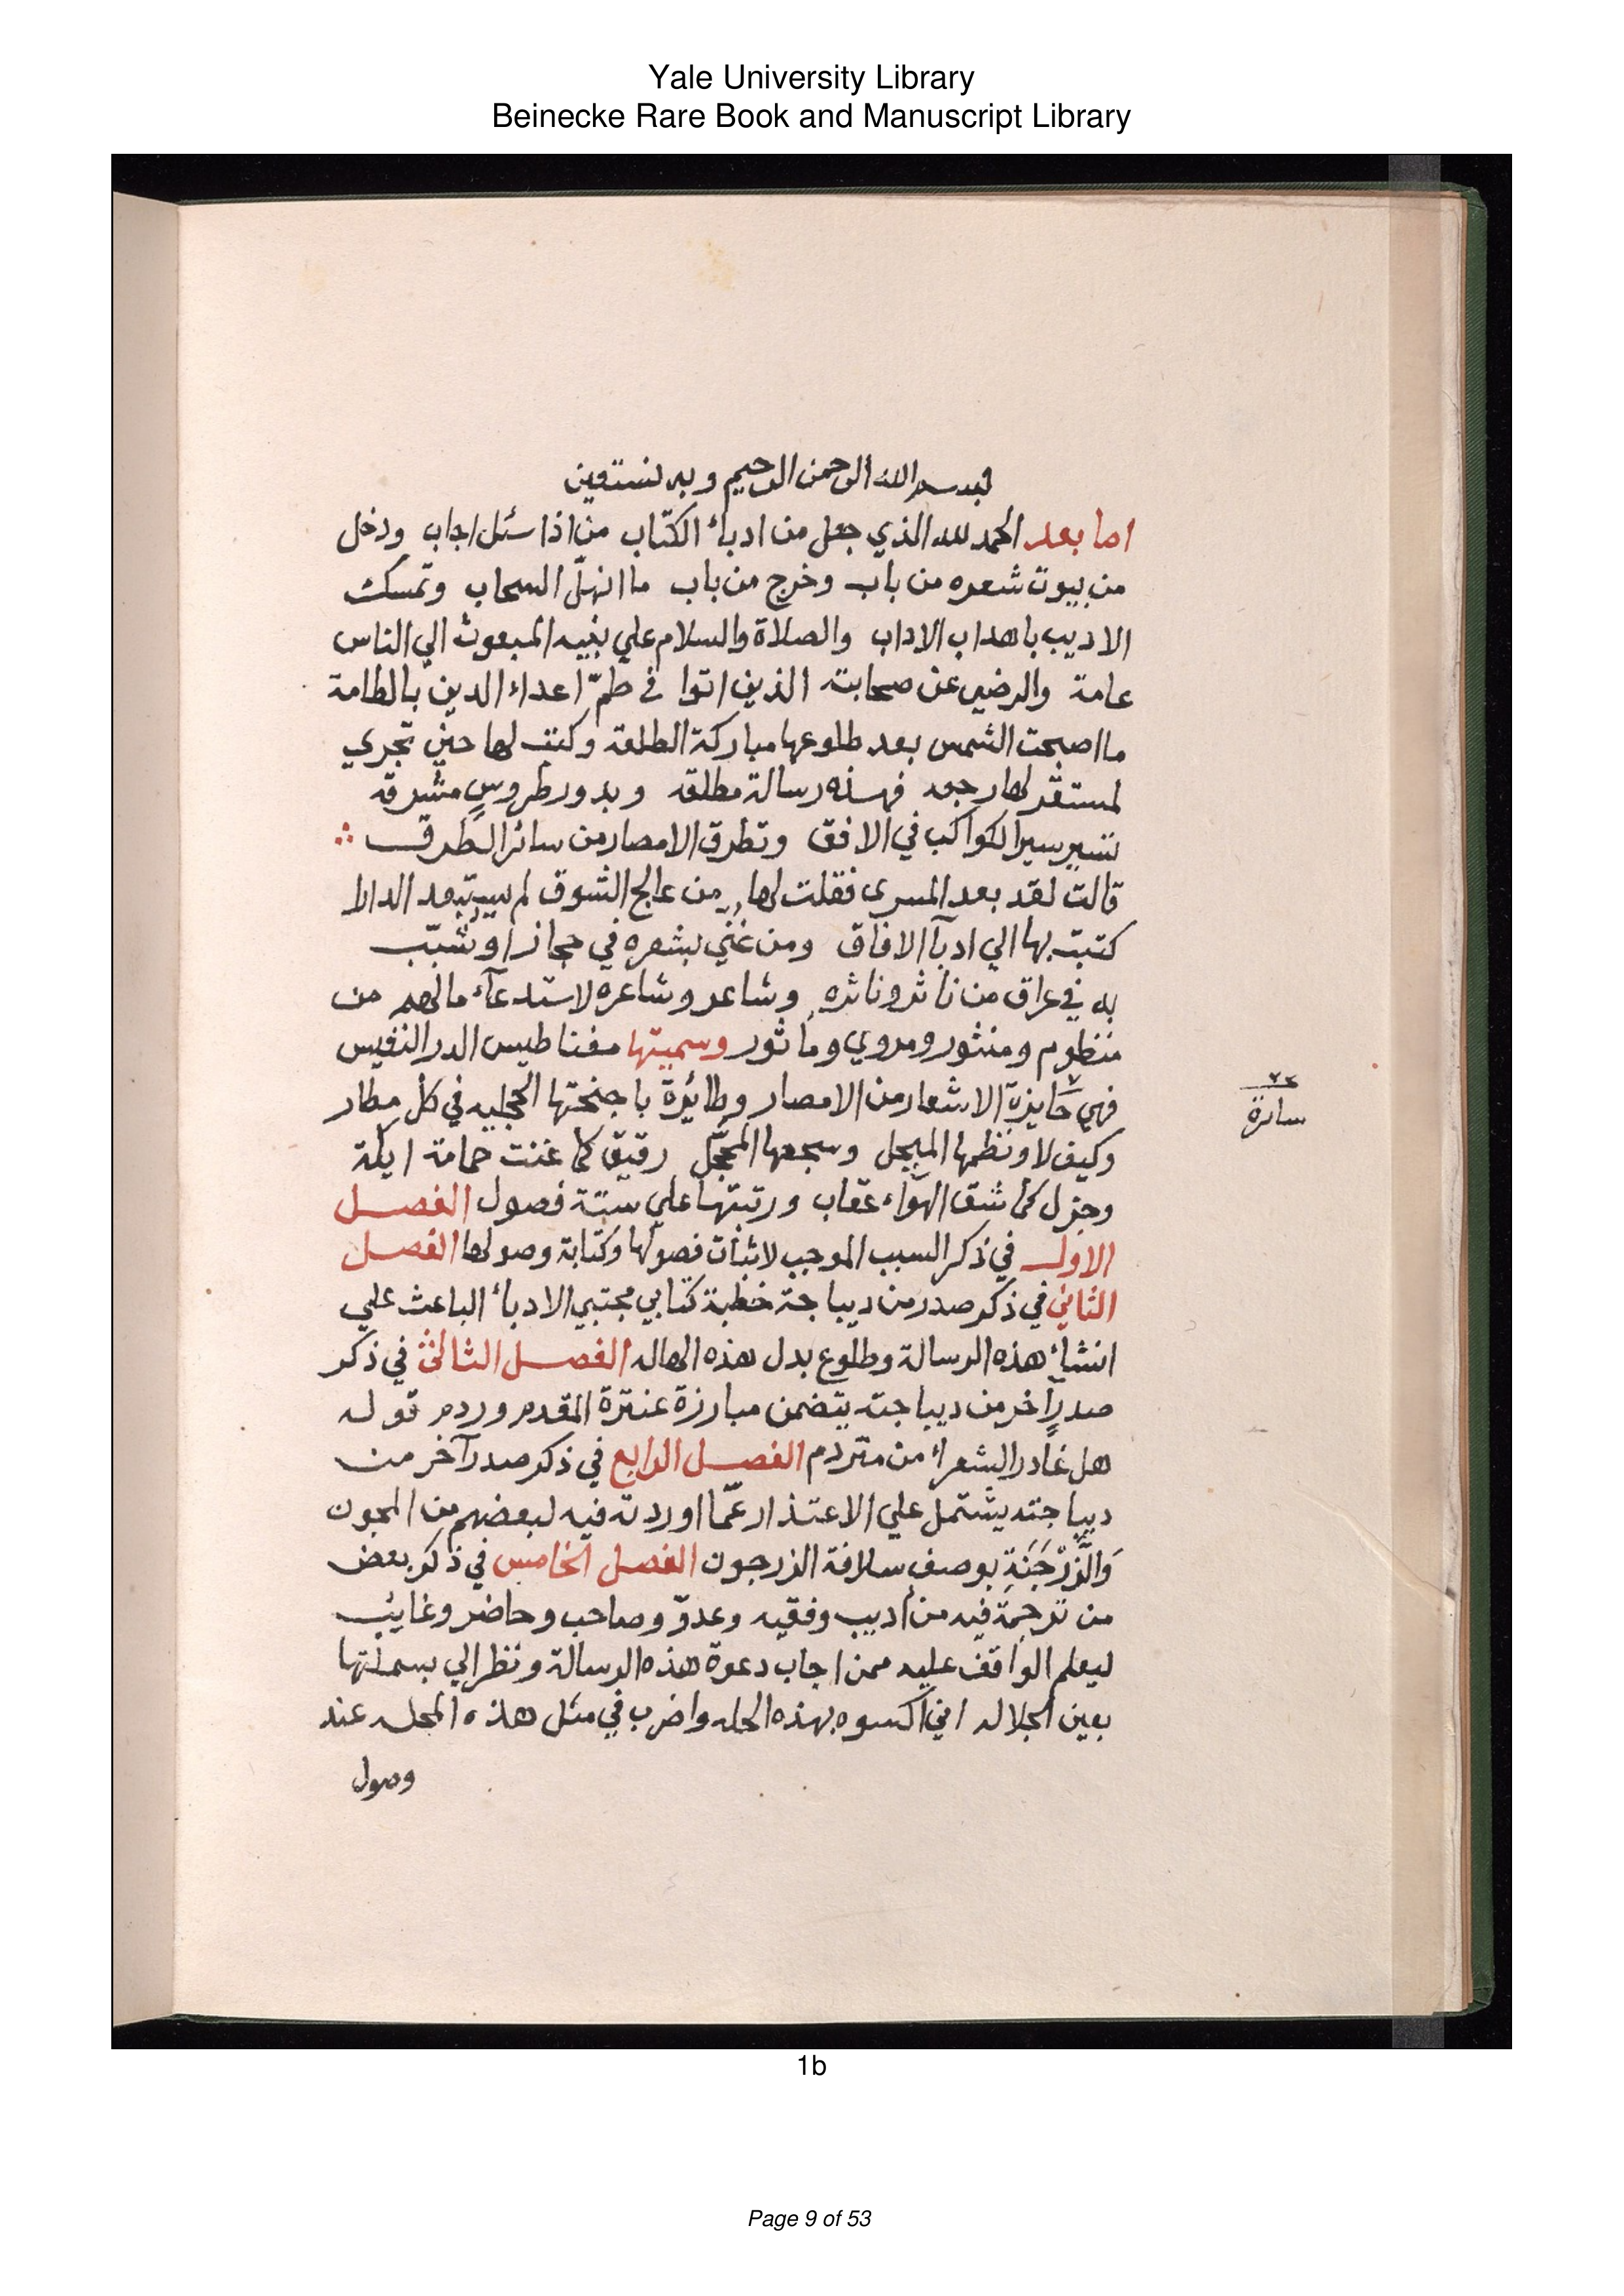 Yale University Library
Beinecke Rare Book and Manuscript Library
بسم الله الرحمن الرحيم وبه نستعين
اما بعد الحمد لله الذي جعل من ادباء الكتّاب من اذا سئل اجاب ودخل
من بيوت شعره من باب وخرج من باب ما انهلّ السحاب وتمسك
الاديب باهداب الاداب والصلاة والسلام علي نبيه المبعوث الي الناس
عامة والرضي عن صحابته الذين اتوا في طمّ اعداء الدين بالطامة
ما اصبحت الشمس بعد طلوعها مباركة الطلعه وكتب لها حين تجري
لمستقر لها رجعه فهذه رسالة مطلقه وبدور طروسٍ مشرقه
تسير سير الكواكب في الافق وتطرق الامصار من سائر الطرق
قالت لقد بعد المسرى فقلت لها من عالج الشوق لم يستبعد الدارا
كتبت بها الي ادبآ الافاق ومن غنّي بشعره في حجاز او شبّب
به في عراق من ناثر وناثره وشاعر وشاعره لاستدعآء مالهم من
منظوم ومنثور ومروي ومأثور وسميتها مغناطيس الدر النفيس
فهي حايزة الاشعار من الامصار وطائرة باجنحتها المحليه في كل مطار
سائرة
وكيف لا ونظمها المبجل وسجعها المحجّل رقيق كما غنت حمامة ايكة
وجزل كما شق الهوآء عقاب ورتبتها علي ستة فصول الفصل
الاول في ذكر السبب الموجب لاثبات فصولها وكتابة وصولها الفصل
الثاني في ذكر صدر من ديباجة خطبة كتابي مجتبي الادباء الباعث علي
انشاء هذه الرسالة وطلوع بدل هذه الهاله الفصل الثالث في ذكر
صدرٍ اخر من ديباجته يتضمن مبارزة عنترة المقدم وردم قوله
هل غادر الشعراء من متردم الفصل الرابع في ذكر صدر آخر من
ديباجته يشتمل علي الاعتذار عمّا اوردته فيه لبعضهم من المجون
وَالزَّرْجَنَةِ بوصف سلافة الزرجون الفصل الخامس في ذكر بعض
من ترجمة فيه من اديب وفقيه وعدوّ وصاحب وحاضر وغايب
ليعلم الواقف عليه ممن اجاب دعوة هذه الرسالة ونظر الي بسملتها
بعين الجلاله اني اكسوه بهذه الحله واضرب في مثل هذه المحله عند
وصول
1b
Page 9 of 53